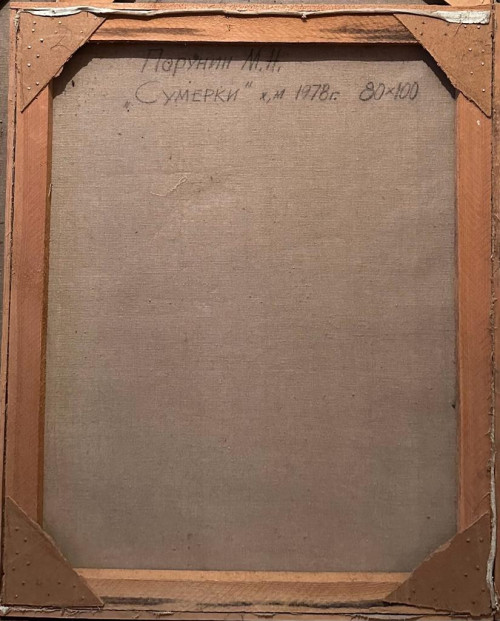 Парунин М.Н.
„Сумерки" х,м 1978г. 80×100